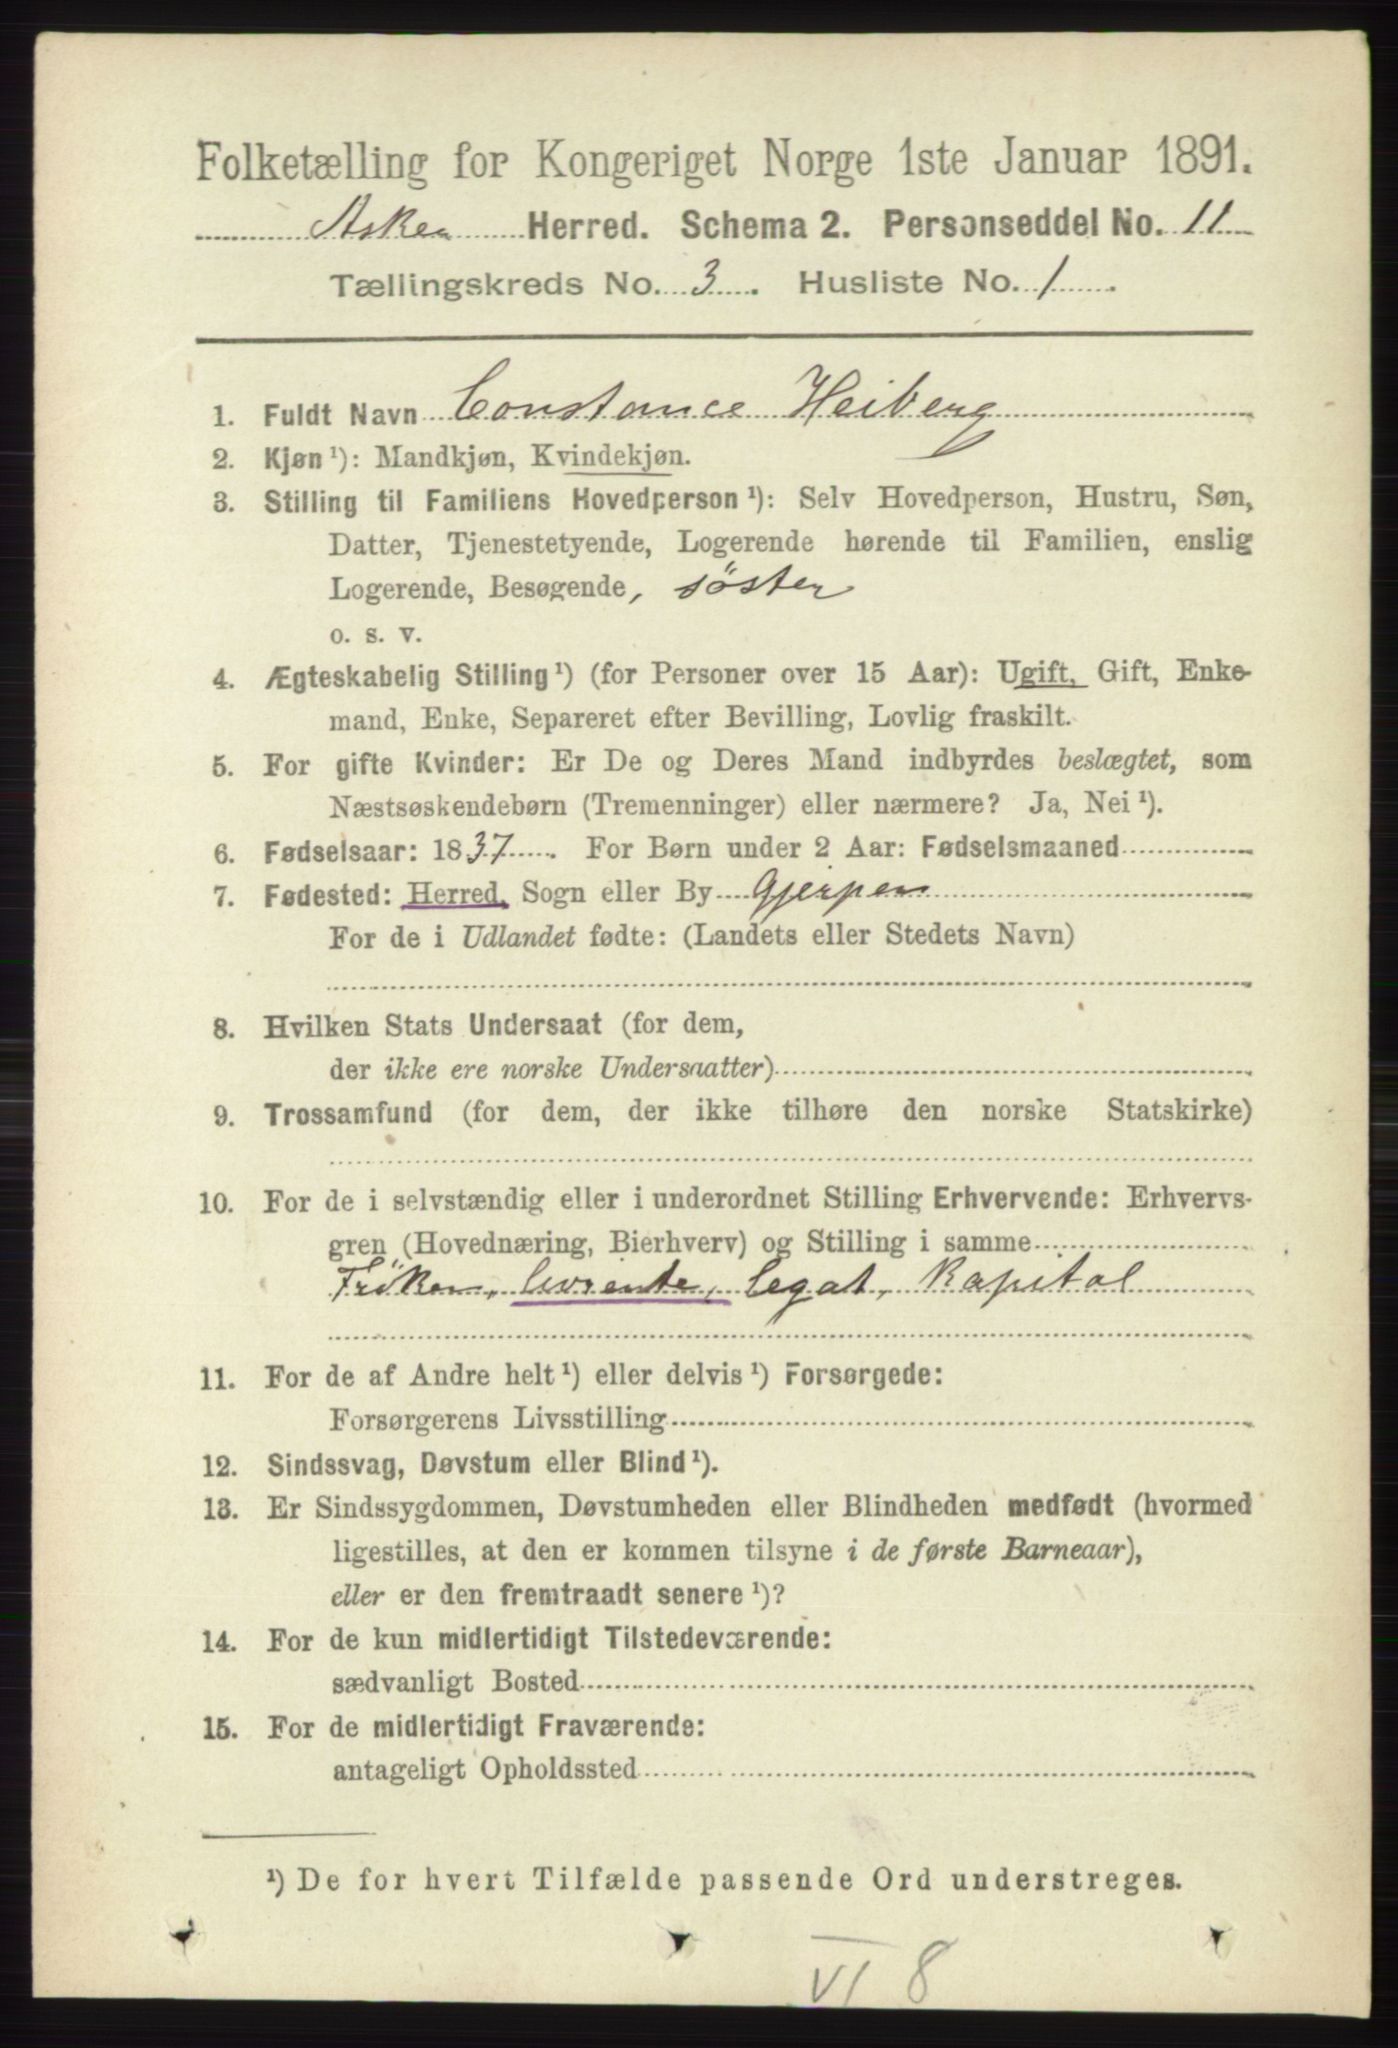 Folketælling for Kongeriget Norge 1ste Januar 1891.
Asker Herred. Schema 2. Personseddel No. 11
Tællingskreds No. 3. Husliste No. 1.
1. Fuldt Navn Constance Heiberg
2. Kjøn ¹): Mandkjøn, Kvindekjøn.
3. Stilling til Familiens Hovedperson ¹): Selv Hovedperson, Hustru, Søn,
Datter, Tjenestetyende, Logerende hørende til Familien, enslig
Logerende, Besøgende, söster
o. s. v.
4. Ægteskabelig Stilling ¹) (for Personer over 15 Aar): Ugift, Gift, Enke-
mand, Enke, Separeret efter Bevilling, Lovlig fraskilt.
5. For gifte Kvinder: Er De og Deres Mand indbyrdes beslægtet, som
Næstsøskendebørn (Tremenninger) eller nærmere? Ja, Nei ¹).
6. Fødselsaar: 1837. For Børn under 2 Aar: Fødselsmaaned
7. Fødested: Herred, Sogn eller By Gjerpen
For de i Udlandet fødte: (Landets eller Stedets Navn)
8. Hvilken Stats Undersaat (for dem,
der ikke ere norske Undersaatter)
9. Trossamfund (for dem, der ikke tilhøre den norske Statskirke)
10. For de i selvstændig eller i underordnet Stilling Erhvervende: Erhvervs-
gren (Hovednæring, Bierhverv) og Stilling i samme
Fröken, livrente, legat, Kapital
11. For de af Andre helt ¹) eller delvis ¹) Forsørgede:
Forsørgerens Livsstilling
12. Sindssvag, Døvstum eller Blind ¹).
13. Er Sindssygdommen, Døvstumheden eller Blindheden medfødt (hvormed
ligestilles, at den er kommen tilsyne i de første Barneaar),
eller er den fremtraadt senere ¹)?
14. For de kun midlertidigt Tilstedeværende:
sædvanligt Bosted
15. For de midlertidigt Fraværende:
antageligt Opholdssted
¹) De for hvert Tilfælde passende Ord understreges.
VI 8